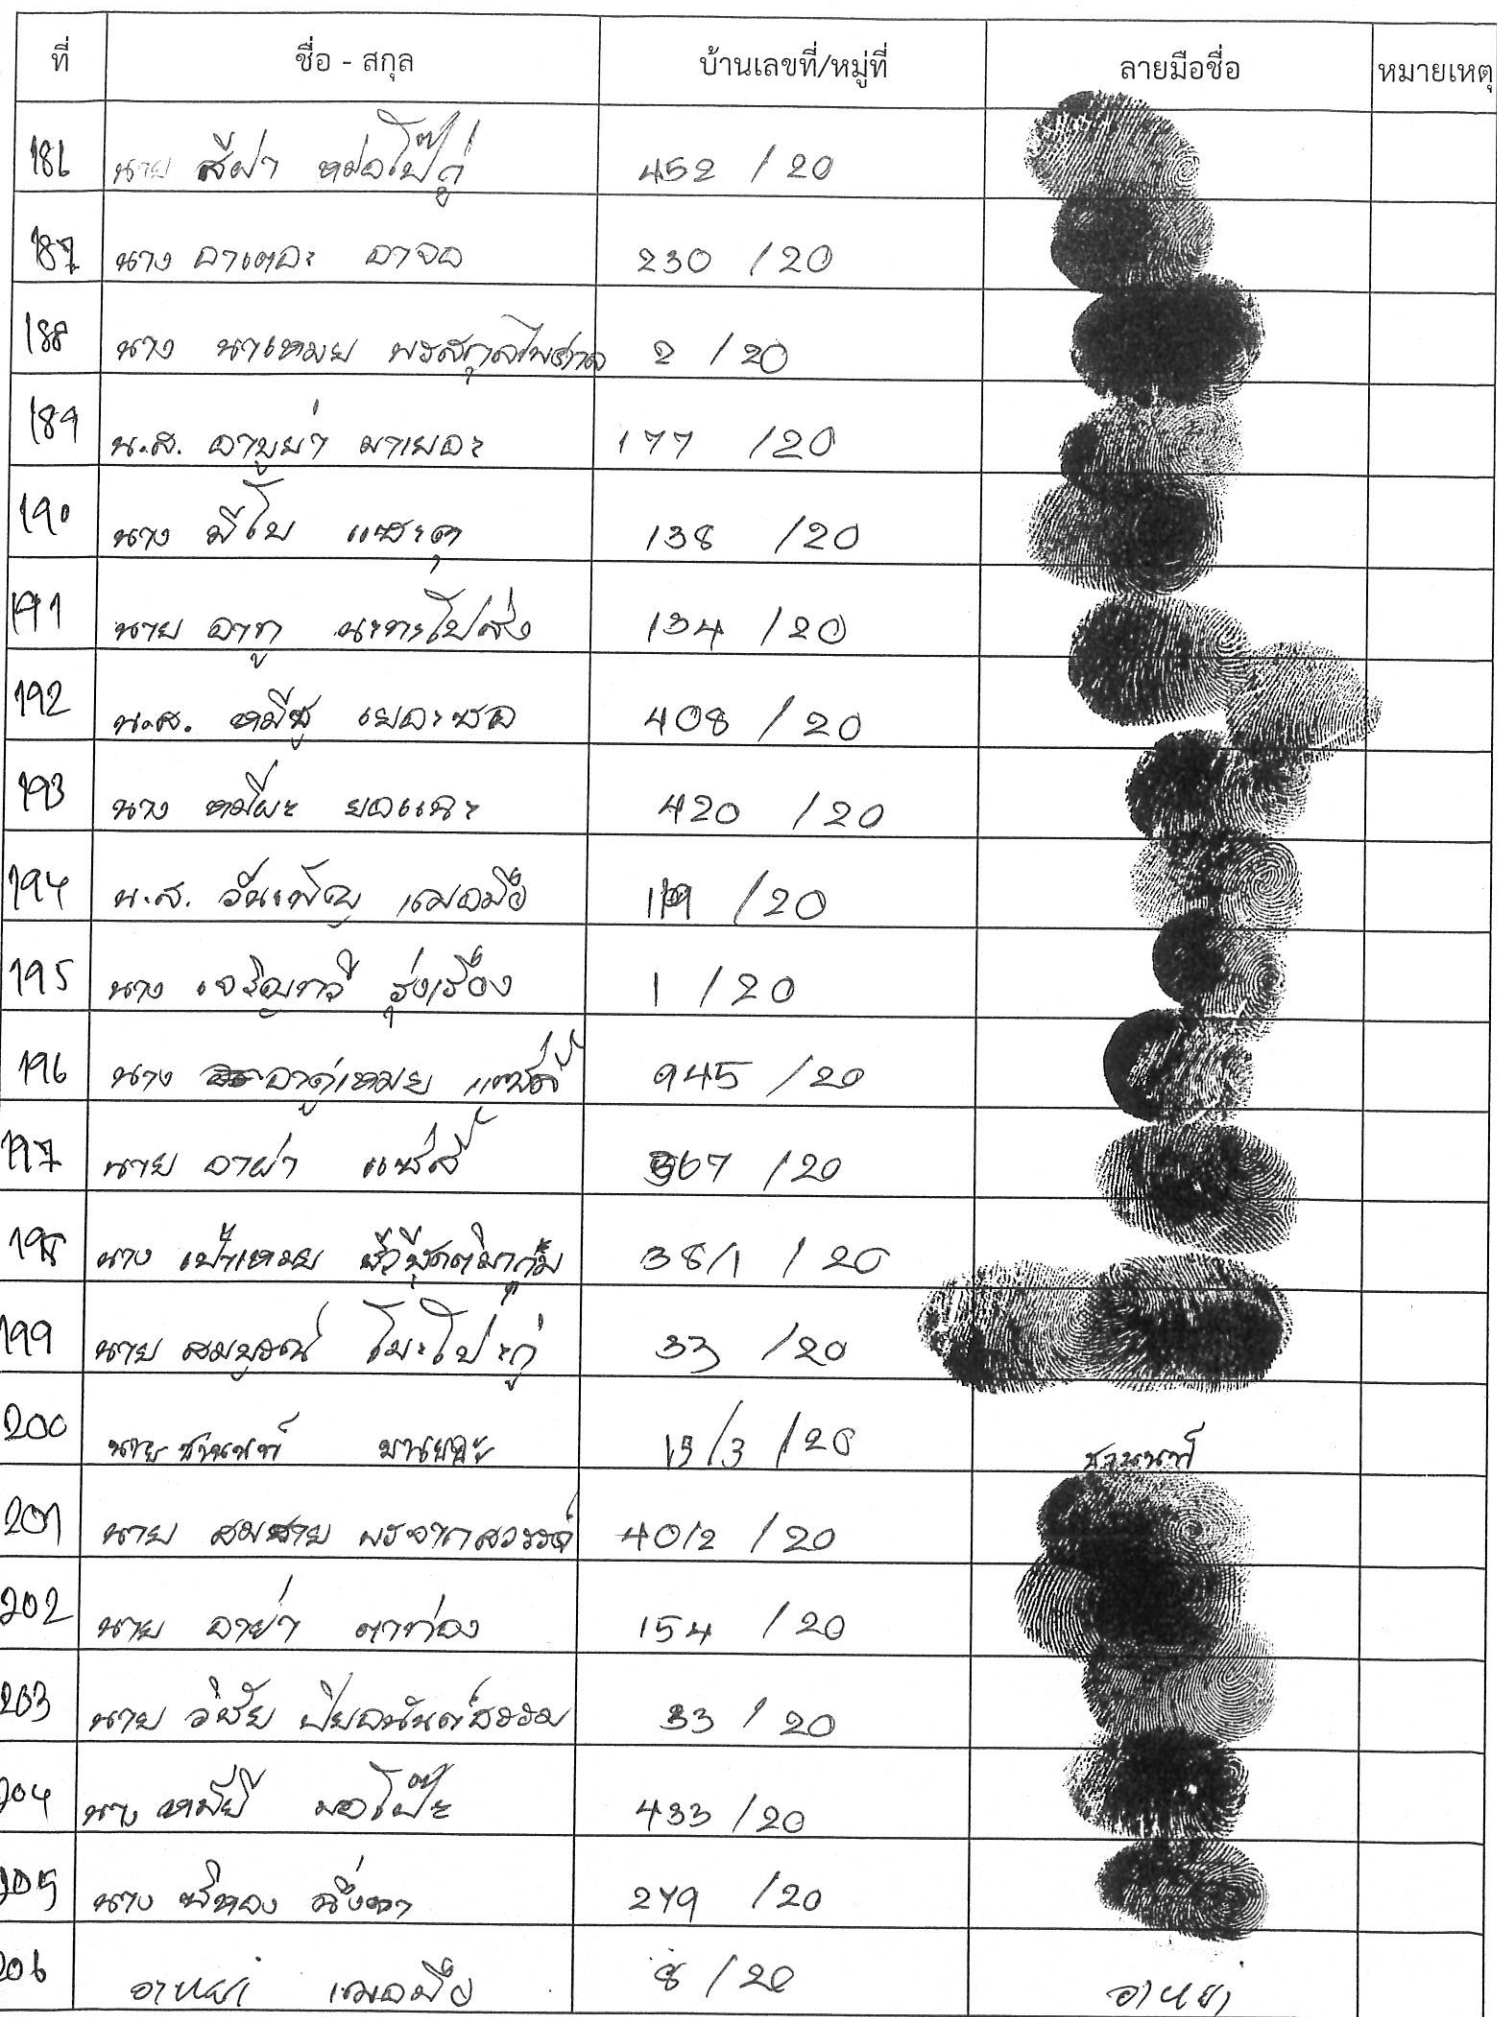 ที่ ชื่อ - สกุล บ้านเลขที่/หมู่ที่ ลายมือชื่อ หมายเหตุ
186 นาย สีฝ่า หม่อโป๊กู่ 452 /20
187 นาง อาเตอะ อาจอ 230 /20
188 นาง นาเหมย พรสกุลไพศาล 2 /20
189 น.ส. อาบูย่า มาเยอะ 177 /20
190 นาง มีโบ แซะดุ 138 /20
191 นาย อาทู นะทะโปส่ง 134 /20
192 น.ส. หมีซู เยอะซอ 408 /20
193 นาง หมี่ผะ ยอแฉะ 420 /20
194 น.ส. วันเพ็ญ เฌอมือ /20
195 นาง รุ่งเรือง 1 /20
196 นาง อาดู่เหมย แซ่ลี้ 945 /20
197 นาย อาผ่า แซ่ลี้ 367 /20
198 นาง เป้าเหมย 38/1 /20
199 นาย สมบูรณ์ โมะโปะกู่ 33 /20
200 นาย ชานนท์ มาเยอะ 15/3 /20 ชานนท์
201 นาย สมชาย พรจากสวรรค์ 40/2 /20
202 นาย อาย่า ตาท่อง 154 /20
203 นาย วิชัย ปิยอนันต์ธรรม 33 /20
204 นาง หมี่ยี มอโป๊ะ 433 /20
205 นาง 279 /20
206 อาหย่า เฌอมือ 8 /20 อาหย่า